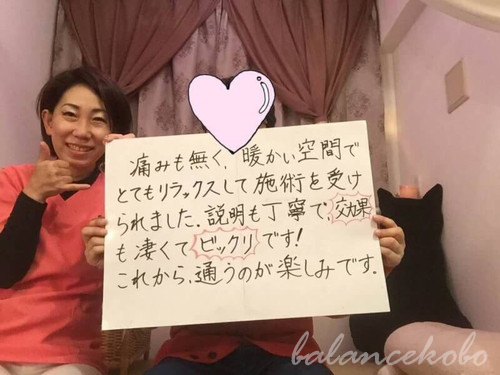 痛みも無く、暖かい空間で
とてもリラックスして施術を受け
られました。説明も丁寧で、効果
も凄くてビックリです!
これから、通うのが楽しみです。
balancekobo